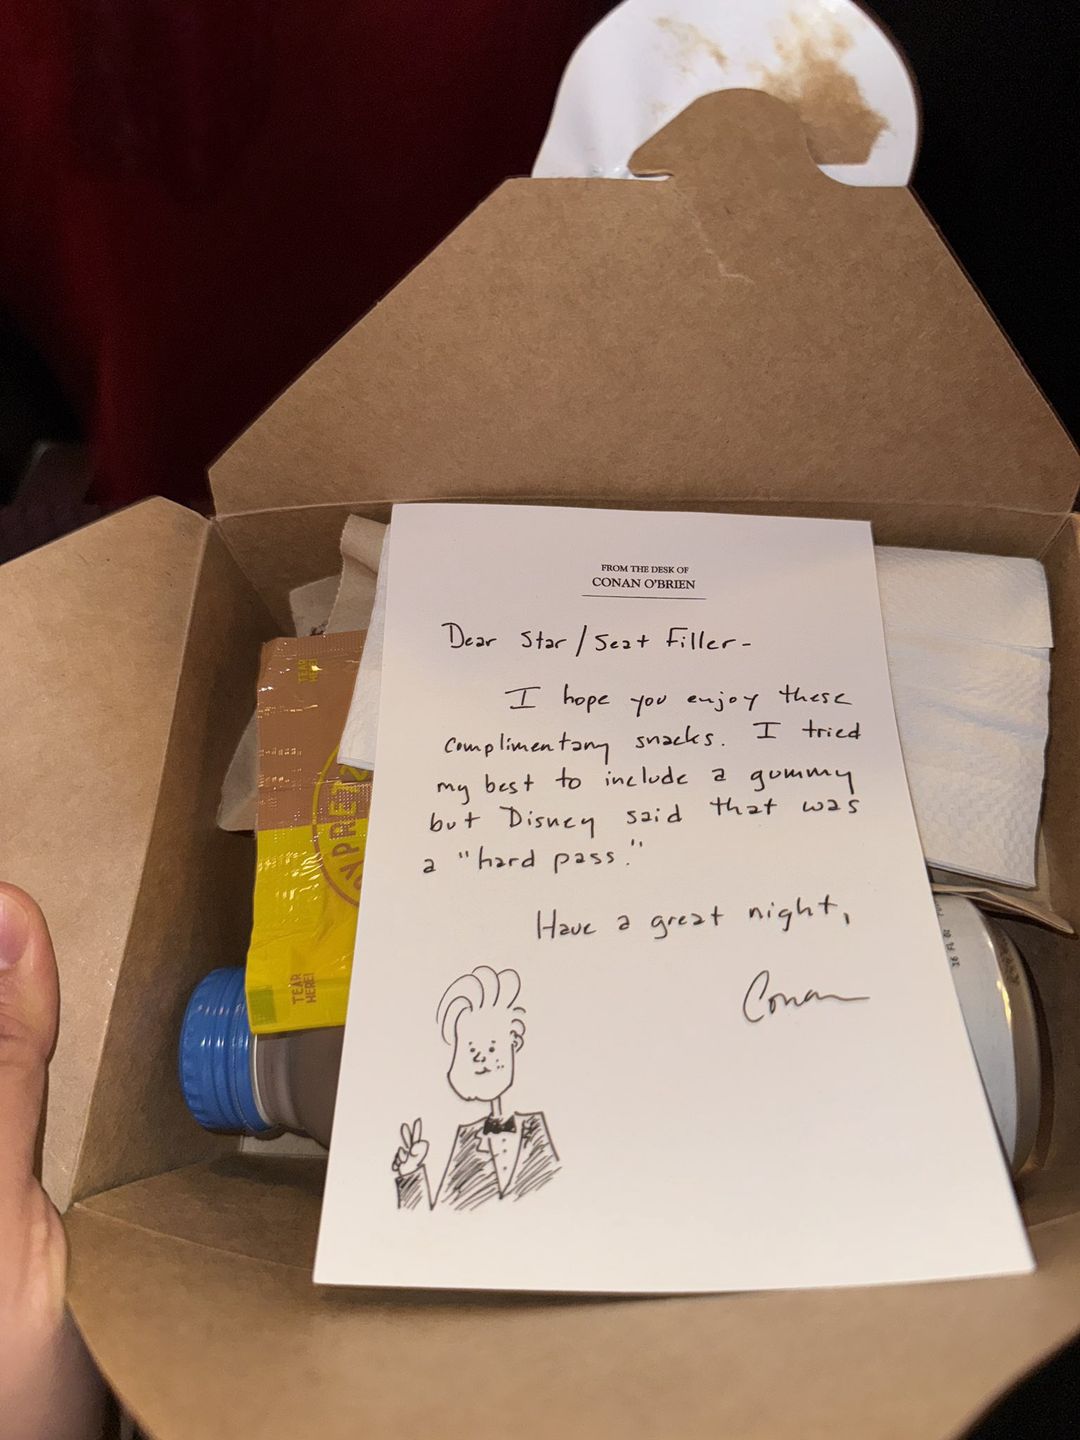 FROM THE DESK OF
CONAN O'BRIEN
Dear Star/Seat Filler-
I hope you enjoy these
complimentary snacks. I tried
my best to include a gummy
but Disney said that was
a "hard pass."
Have a great night,
Conan
TEAR HERE!
TEAR HERE!